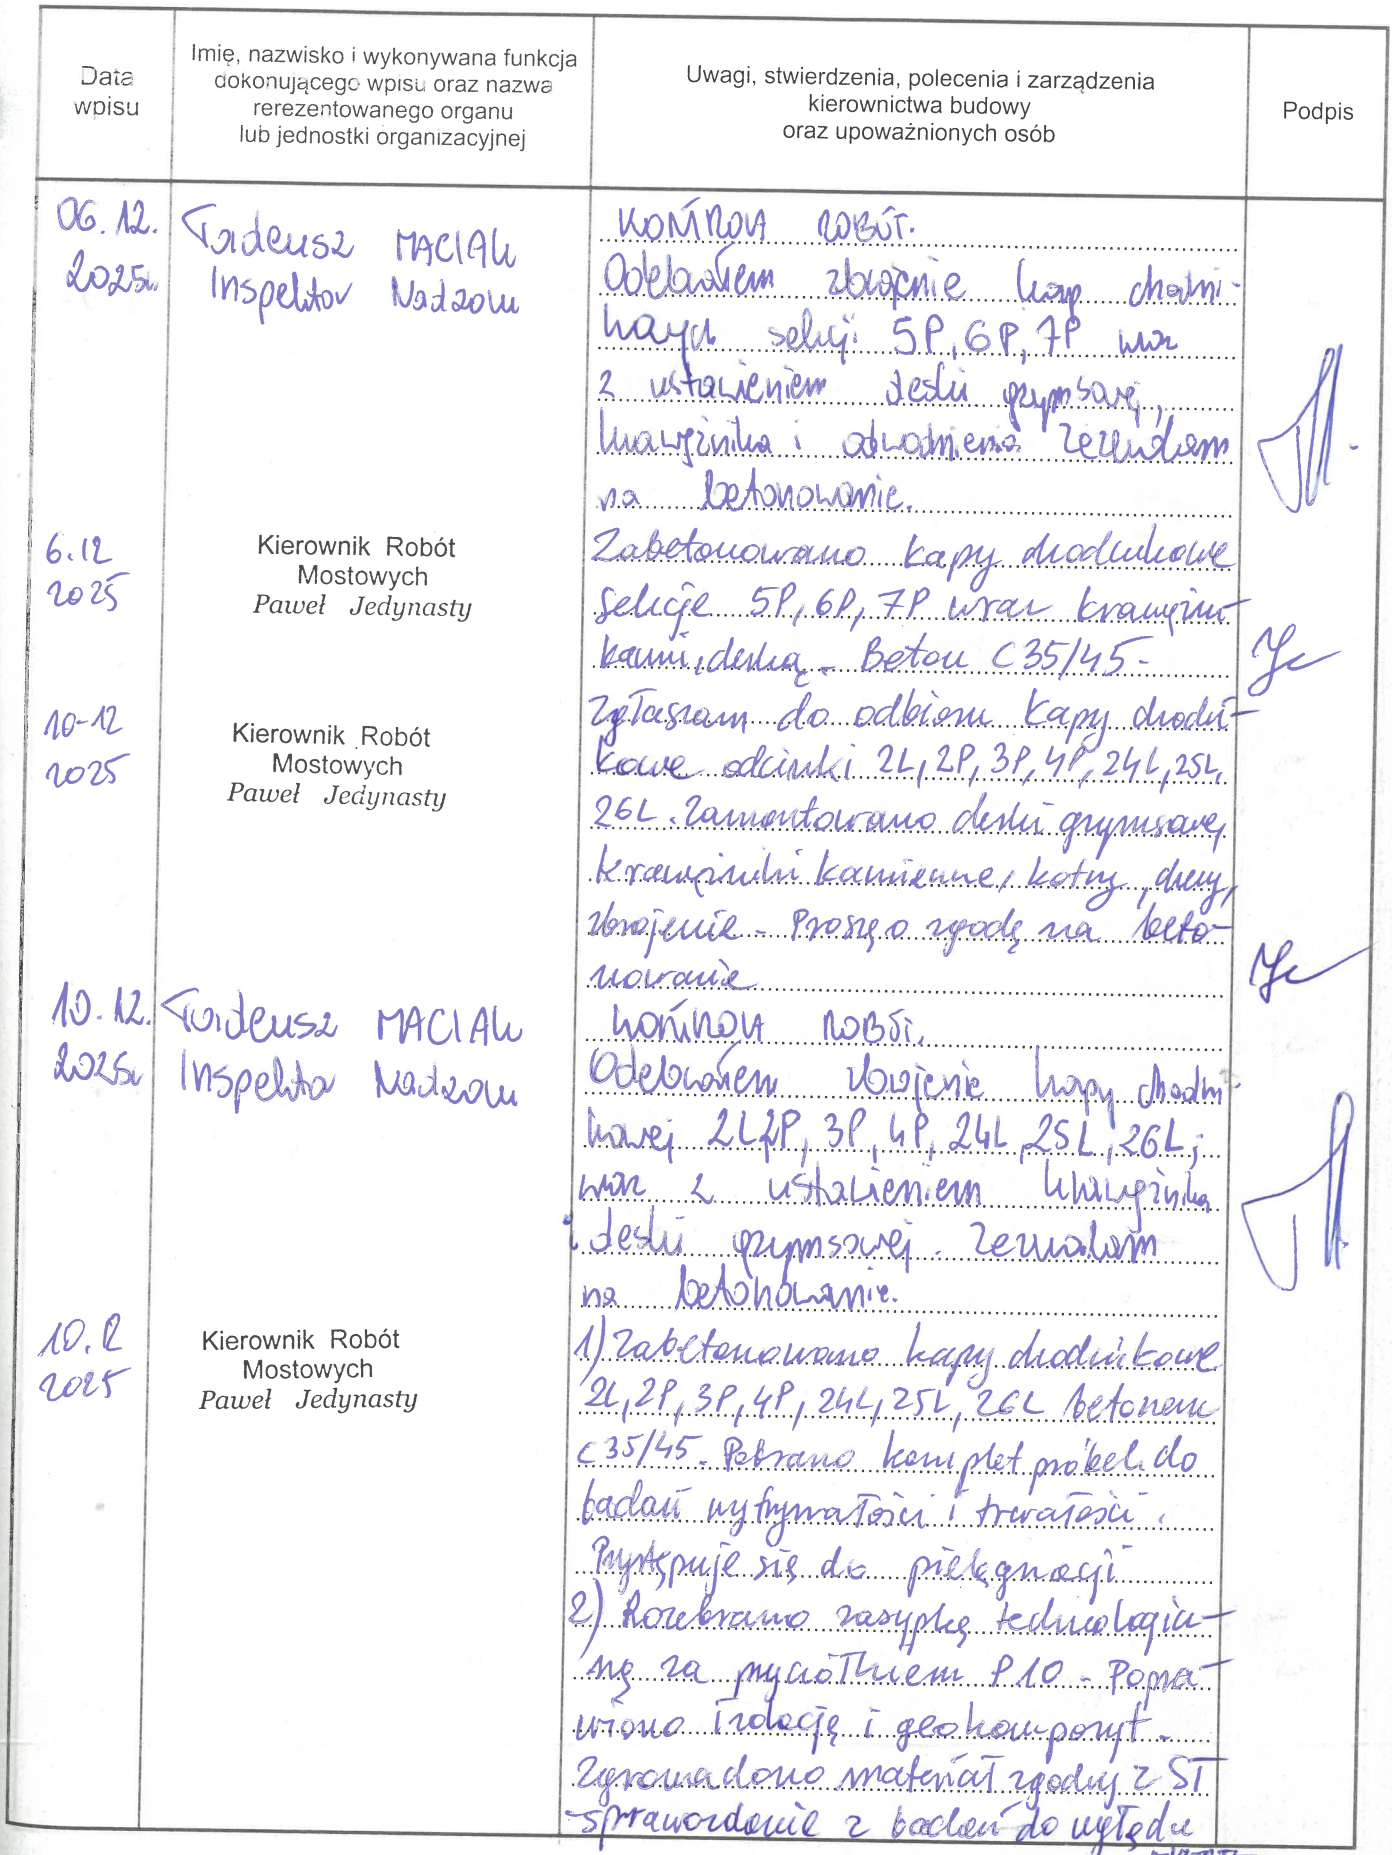 Data
wpisu
Imię, nazwisko i wykonywana funkcja
dokonującego wpisu oraz nazwa
rerezentowanego organu
lub jednostki organizacyjnej
Uwagi, stwierdzenia, polecenia i zarządzenia
kierownictwa budowy
oraz upoważnionych osób
Podpis
06.12.
2025r.
Tadeusz MACIAK
Inspektor Nadzoru
KONTROLA ROBÓT.
Odebrałem zbrojenie kap chodni-
kowych sekcji 5P, 6P, 7P wraz
z ustawieniem deski gzymsowej,
krawężnika i odwodnienia. Zezwalam
na betonowanie.
6.12
2025
Kierownik Robót
Mostowych
Paweł Jedynasty
Zabetonowano kapy chodnikowe
sekcje 5P, 6P, 7P wraz krawężni-
kami, deską - Beton C35/45 -
10-12
2025
Kierownik Robót
Mostowych
Paweł Jedynasty
Zgłaszam do odbioru kapy chodni-
kowe odcinki 2L, 2P, 3P, 4P, 24L, 25L,
26L. Zamontowano deski gzymsowej
krawężniki kamienne, kotwy, dreny,
zbrojenie - Proszę o zgodę na beto-
nowanie
10.12.
2025r
Tadeusz MACIAK
Inspektor Nadzoru
KONTROLA ROBÓT.
Odebrałem zbrojenie kapy chodni-
kowej 2L 2P, 3P, 4P, 24L, 25L, 26L;
wraz z ustawieniem krawężnika
i deski gzymsowej. Zezwalam
na betonowanie.
10.12
2025
Kierownik Robót
Mostowych
Paweł Jedynasty
1) Zabetonowano kapy chodnikowe
2L, 2P, 3P, 4P, 24L, 25L, 26L betonem
C35/45. Pobrano komplet próbek do
badań wytrzymałości i trwałości.
Przystępuje się do pielęgnacji
2) Rozebrano zasypkę technologicz-
ną za przyczółkiem P10 - Popra-
wiono izolację i geokompozyt -
Zgromadzono materiał zgodny z ST
- sprawozdanie z badań do wglądu